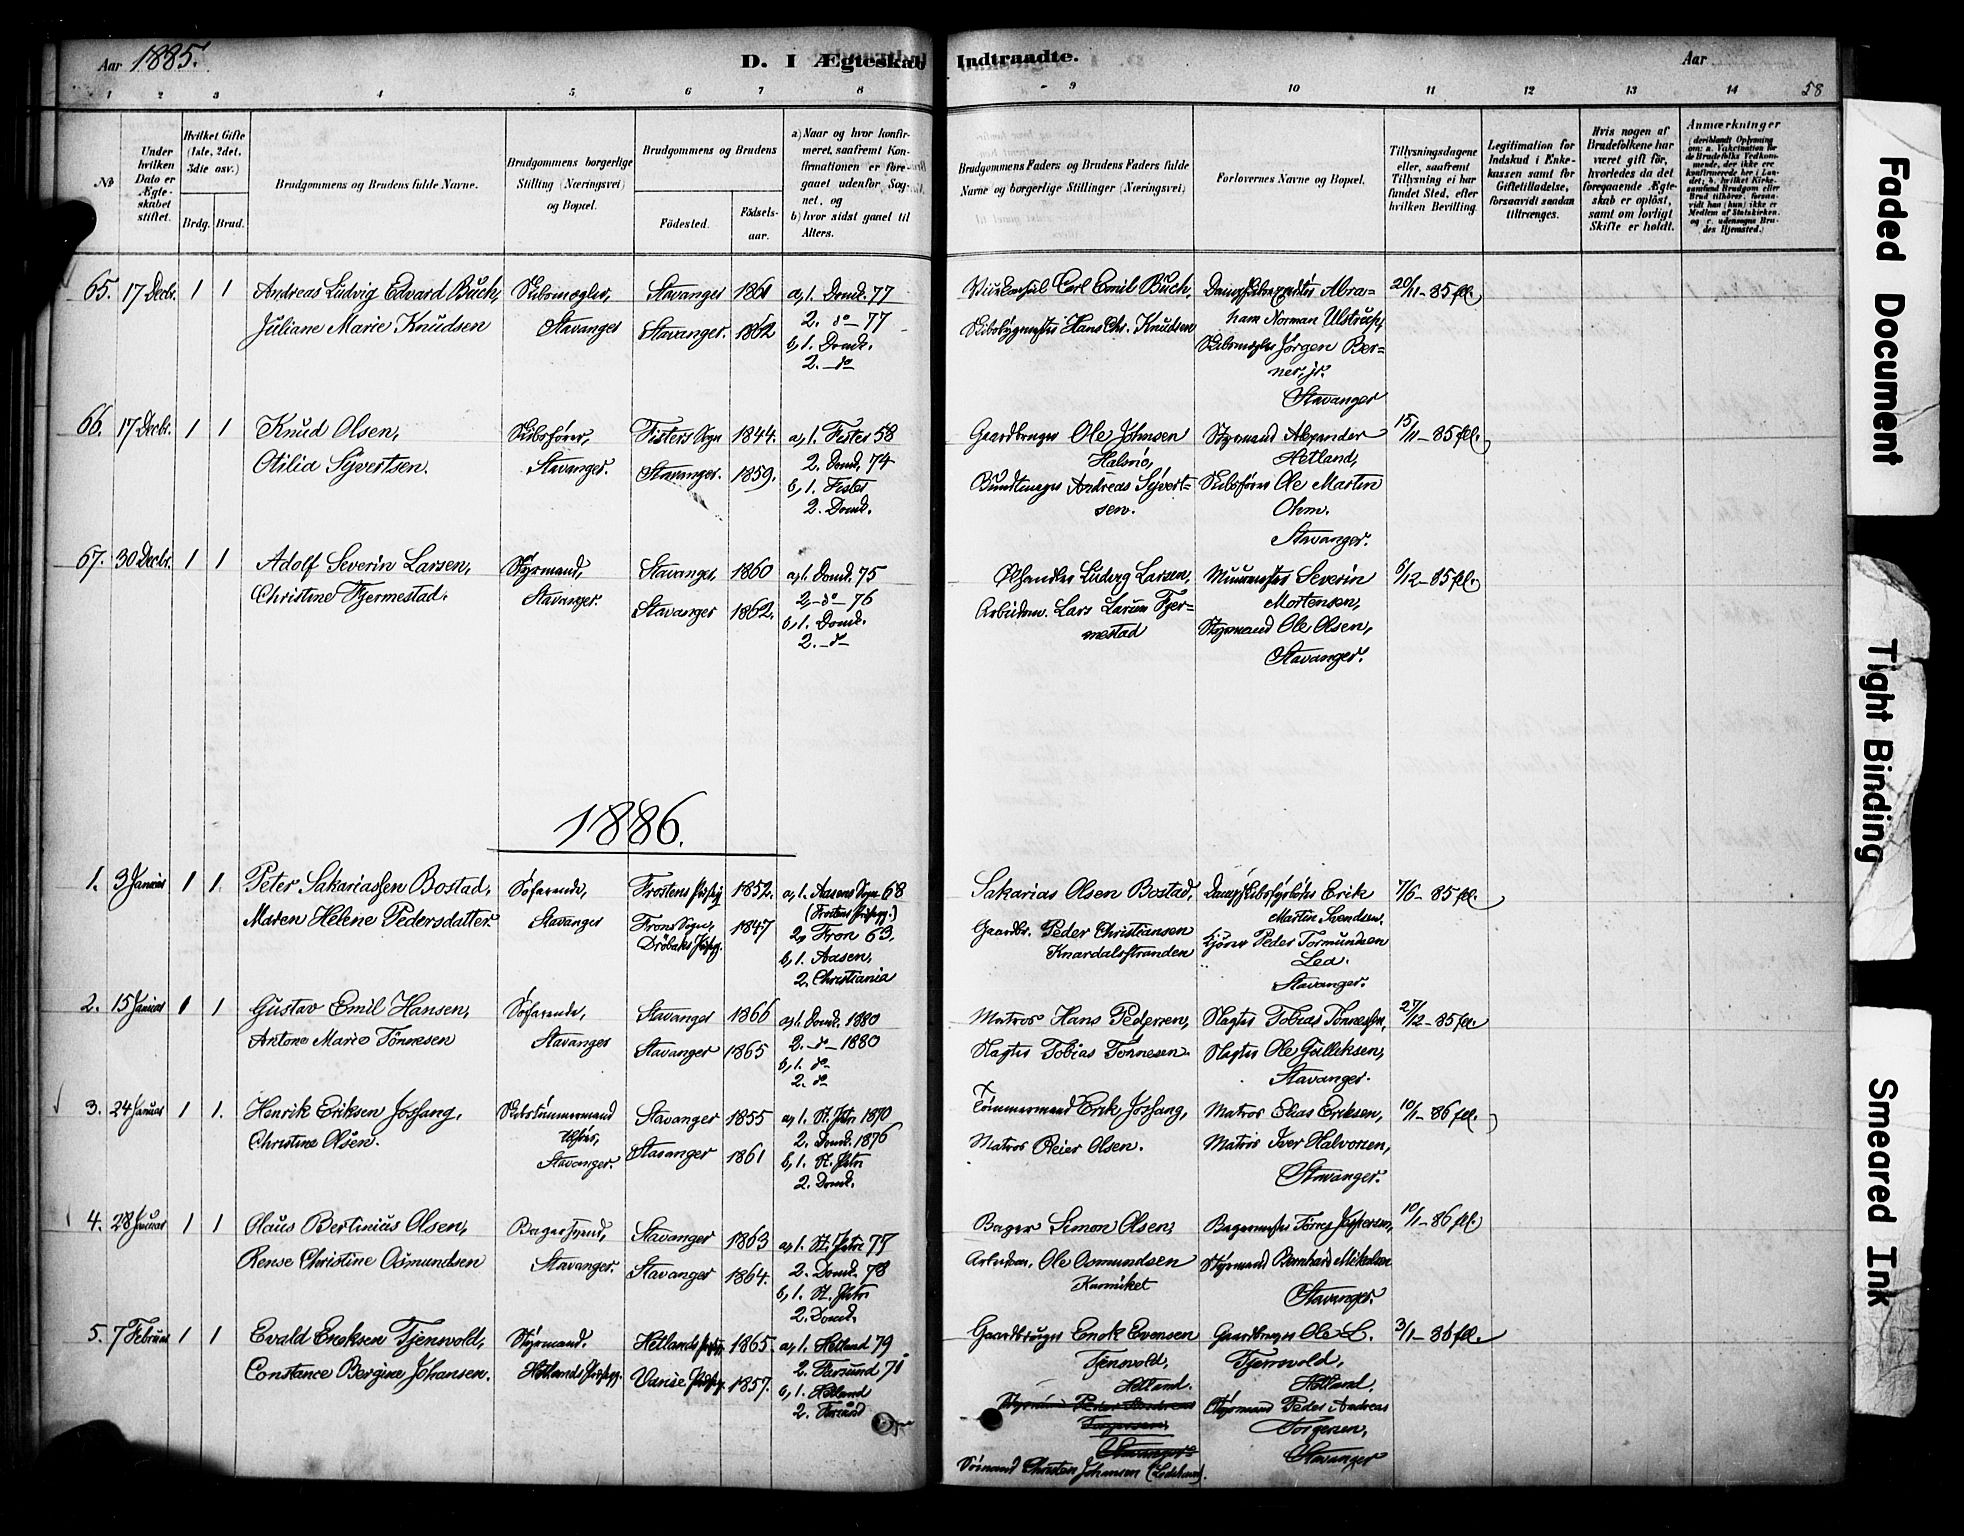 Aar 1885.
D. I Ægteskab Indtraadte.
Aar
1 2 3 4 5 6 7 8 9 10 11 12 13 14 58
No
Under hvilken Dato er Ægteskabet stiftet.
Hvilket Gifte (1ste, 2det, 3die osv.)
Brdg. Brud.
Brudgommens og Brudens fulde Navne.
Brudgommens borgerlige Stilling (Næringsvei) og Bopæl.
Brudgommens og Brudens
Födested.
Födselsaar.
a) Naar og hvor konfirmeret, saafremt Konfirmationen er foregaaet udenfor Sognet, og
b) hvor sidst gaaet til Alters.
Brudgommens Faders og Brudens Faders fulde Navne og borgerlige Stillinger (Næringsvei)
Forlovernes Navne og Bopæl.
Tillysningsdagene eller, saafremt Tillysning ei har fundet Sted, efter hvilken Bevilling.
Legitimation for Indskud i Enkekassen samt for Giftetilladelse, forsaavidt saadan tiltrænges.
Hvis nogen af Brudefolkene har været gift för, hvorledes da det foregaaende Ægteskab er oplöst, samt om lovligt Skifte er holdt.
Anmærkninger
65. 17 Decbr. 1 1 Andreas Ludvig Edvard Buch, Skibsmægler, Stavanger 1861 a, 1. Domk. 77
Juliane Marie Knudsen Stavanger Stavanger. 1862 2. do 77
b, 1. Domk.
2. do
Carl Emil Buch, Abraham Norman Ulstrup, 20/11-85 fl.
Skibsbygmester Hans Chr. Knudsen Skibsmægler Jörgen Berner, jr.
Stavanger
66. 17 Decbr. 1 1 Knud Olsen, Skibsförer, Fisters Sogn 1844. a, 1. Fister 58
Otilia Syvertsen. Stavanger. Stavanger. 1859. 2. Domk. 74
b, 1. Fister
2. Domk.
Gaardbruger Ole Johnsen Halsnö, Styrmand Alexander Hetland, 15/11-85 fl.
Bundtmager Andreas Syvertsen. Skibsförer Ole Martin Ohm.
Stavanger.
67. 30 Decbr. 1 1 Adolf Severin Larsen, Styrmand, Stavanger, 1860 a, 1. Domk. 75
Christine Fjermestad. Stavanger. Stavanger 1862. 2. do 76
b, 1. Domk.
2. do
Ludvig Larsen, Murmester Severin Mortensen, 6/12-85 fl.
Arbeidsm. Lars Fjermestad Styrmand Ole Olsen,
Stavanger.
1886.
1. 3 Januar 1 1. Peter Sakariassen Bostad, Söfarende, Frostens Prstgj. 1852. a, 1. Aasens Sogn 68
(Frostens Prstgj.)
Maren Helene Pedersdatter. Stavanger Frons Sogn, Dröbaks Prstgj. 1847 2. Fron 63.
b, 1. Aasen,
2. Christiania
Sakarias Olsen Bostad, Dampskibsfyrböder Erik Martin Svendsen. 7/6-85 fl.
Gaardbr. Peder Christiansen Knardalsstranden Kjörer Peder Tormundsen Lea.
Stavanger.
2. 15 Januar 1 1 Gustav Emil Hansen, Söfarende, Stavanger 1866 a, 1. Domk. 1880
Antone Marie Tönnesen Stavanger Stavanger 1865 2. do 1880
b, 1. do
2. do
Matros Hans Pedersen, Slagter Tobias Tönnessen, 27/12-85 fl.
Slagter Tobias Tönnesen. Slagter Ole Gulliksen,
Stavanger.
3. 24 Januar 1 1. Henrik Eriksen Jösfang, Skibstömmermand Stavanger 1855 a, 1. St. Petri 1870
Christine Olsen. Stavanger. Stavanger 1861 2. Domk. 1876
b, 1. St. Petri
2. Domk.
Tömmermand Erik Jösfang, Matros Elias Eriksen, 10/1-86 fl.
Matros Reier Olsen. Matros Iver Halvorsen,
Stavanger.
4. 28 Januar 1 1 Olaus Bertinius Olsen, Bagersvend, Stavanger 1863 a, 1. St. Petri 77
Rense Christine Osmundsen Stavanger. Stavanger 1864. 2. Domk. 78
b, 1. St. Petri
2. Domk.
Bager Simon Olsen, Bagermester Törres Jespersen, 10/1-86 fl.
Arbeidsm. Ole Osmundsen Styrmand Bernhard Mikelsen
Stavanger.
5. 7 Februar 1 1 Evald Enoksen Tjensvold, Styrmand. Hetlands Prstgj. 1865. a, 1. Hetland 79
Constance Bergine Johansen. Hetlands Prstgj. Vanse Prstgj. 1857. 2. Farsund 71
b, 1. Hetland
2. Farsund
Gaardbruger Enok Evensen Tjensvold, Hetland. Gaardbruger Ole L. Tjensvold, Hetland. 3/1-86 fl.
Styrmand Peder Andreas Torgersen, Stavanger Styrmand Peder Andreas Torgersen,
Sömand Christen Johansen Stavanger
Faded Document
Tight Binding
Smeared Ink